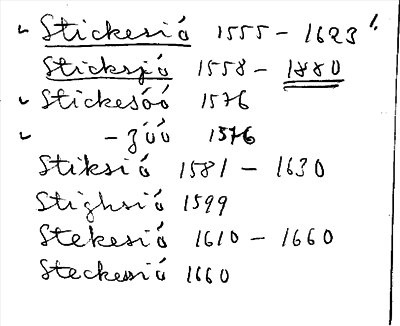 ✓ Stickesió 1555 – 1623 !
Sticksjó 1558 – 1880
✓ Stickesóó 1576
✓ – zóó 1576
Stiksió 1581 – 1630
Stighsió 1599
Stekesió 1610 – 1660
Steckesió 1660